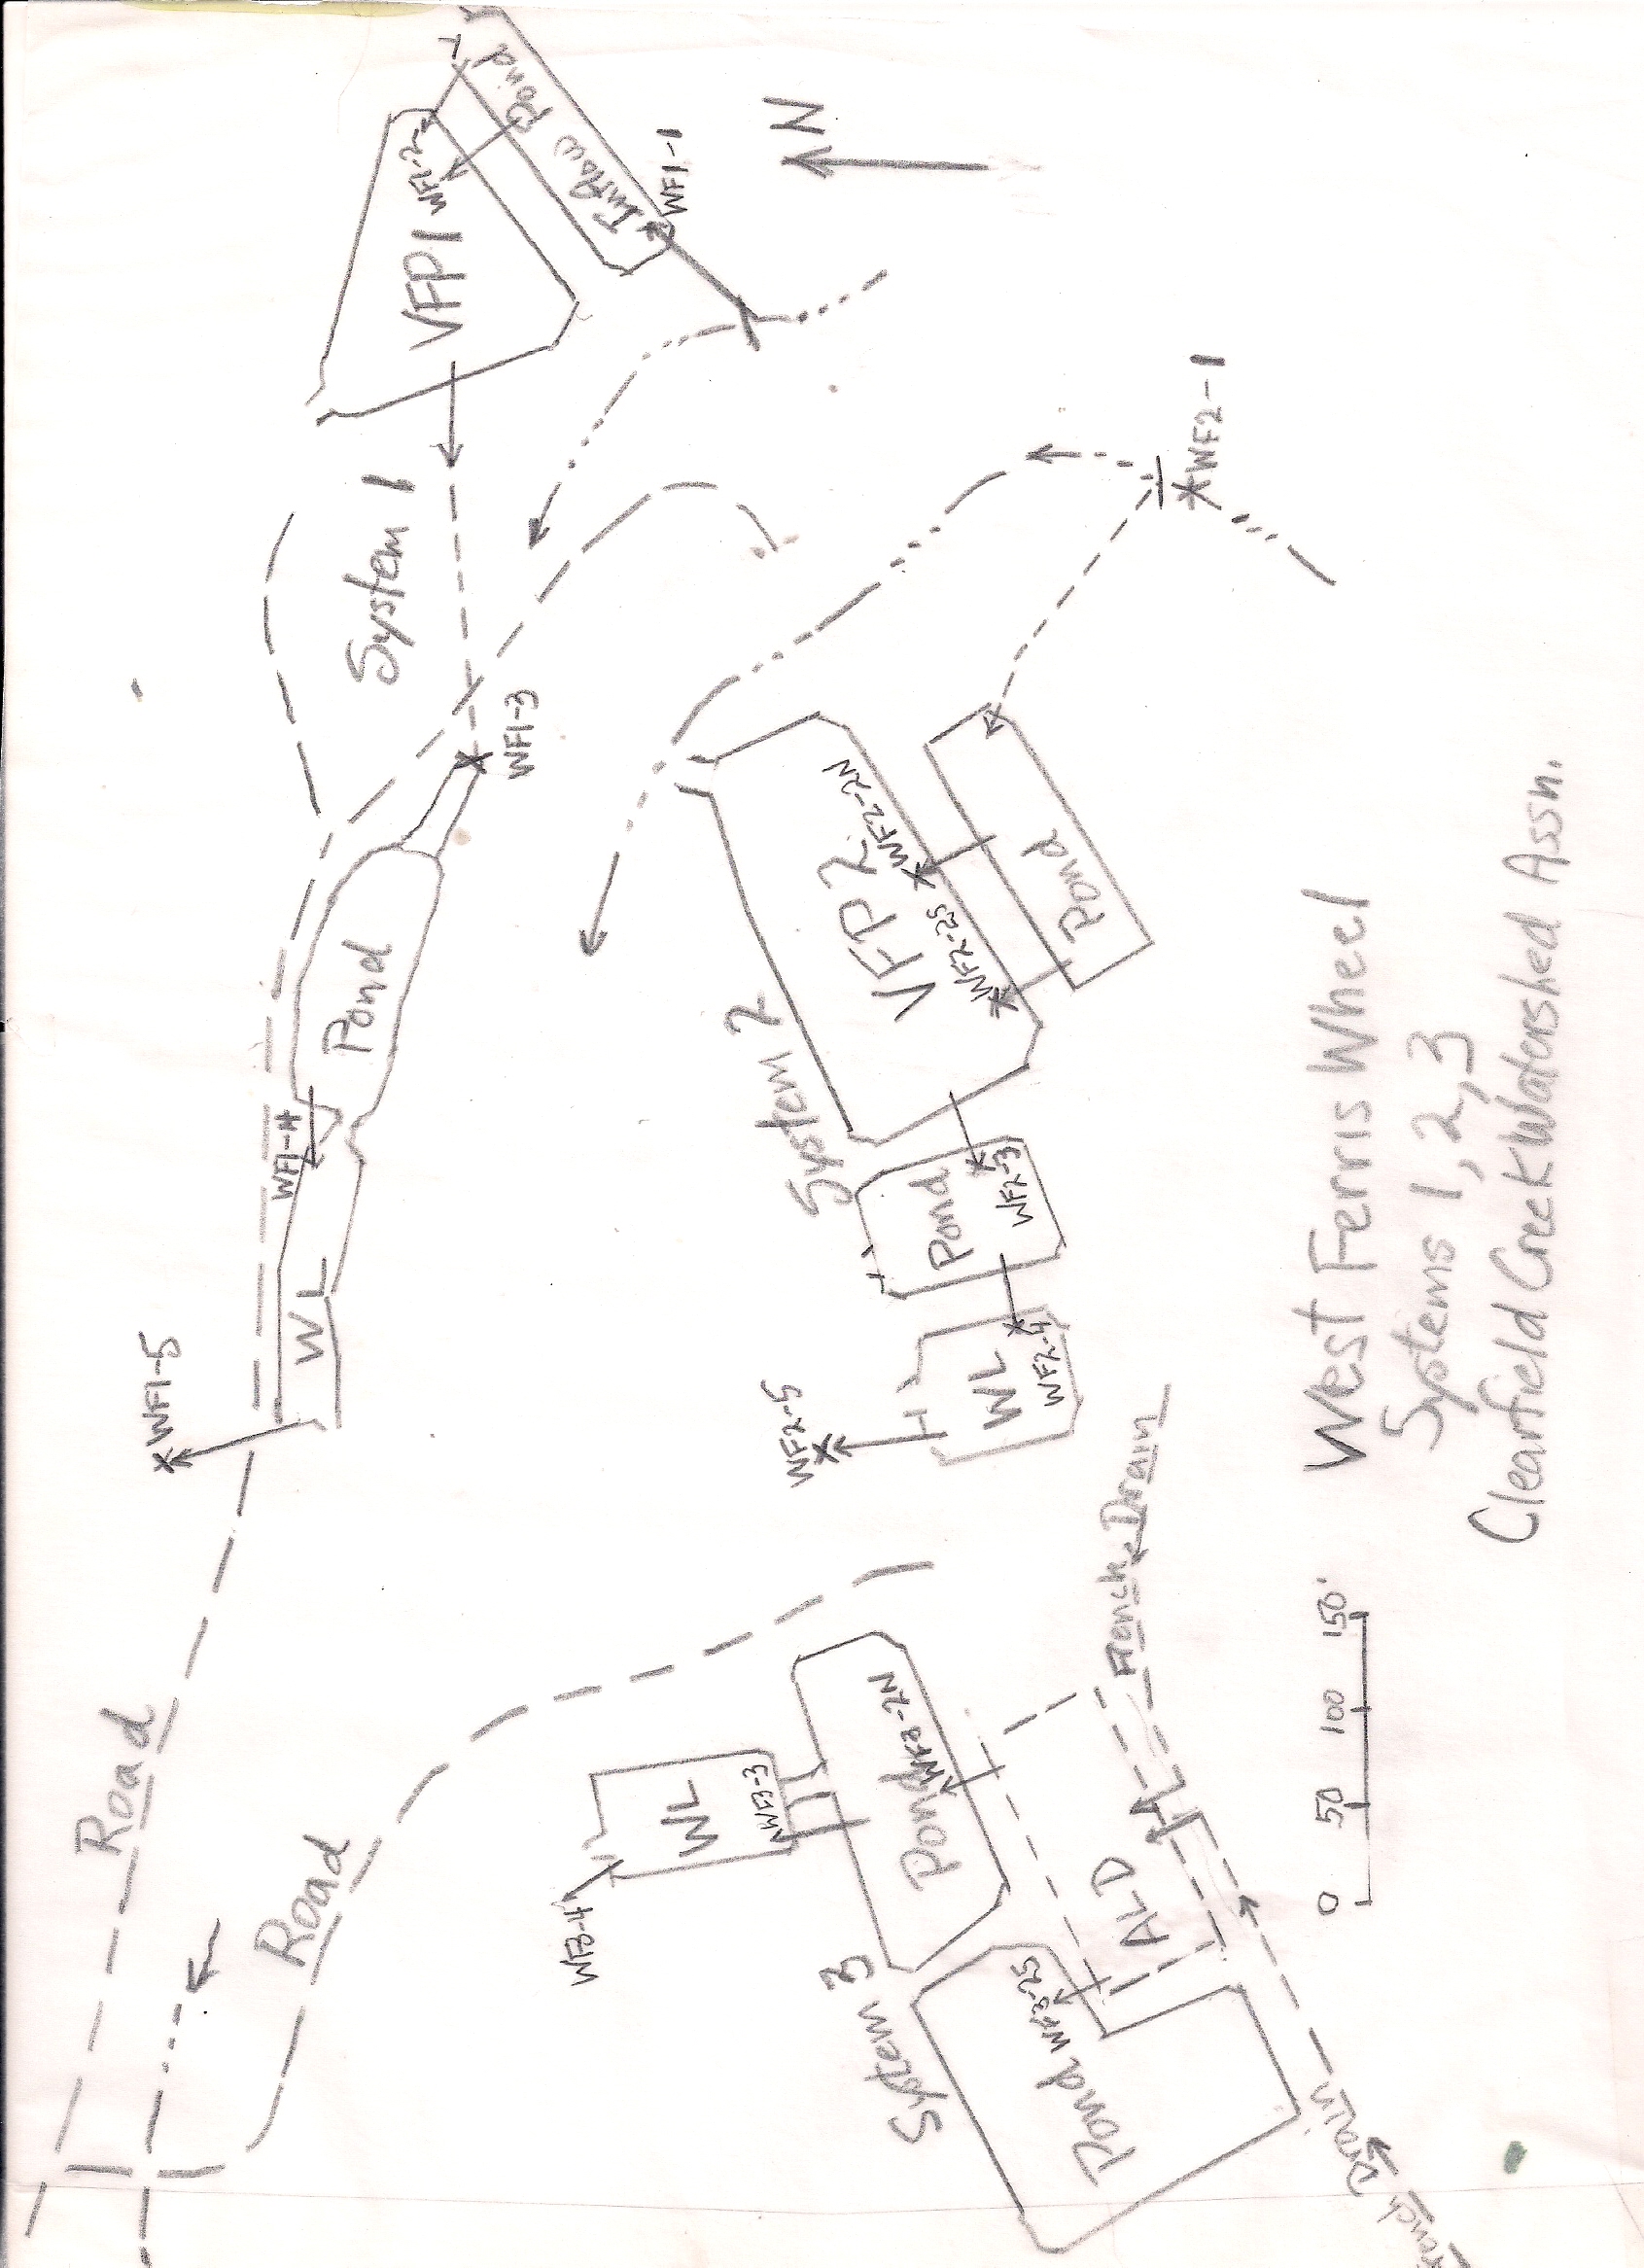 Road
Road
WF1-5
WL
WF1-4
Pond
WF1-3
System 1
VFP1
WF1-2
Inflow Pond
WF1-1
N
System 2
VFP 2
WF2-2N
WF2-2S
Pond
WF2-1
Pond
WF2-3
WL
WF2-4
WF2-5
System 3
WL
WF3-3
WF3-4
Pond
WF3-2N
Pond
WF3-2S
ALD
French Drain
French Drain
0 50 100 150'
West Ferris Wheel
Systems 1, 2, 3
Clearfield Creek Watershed Assn.